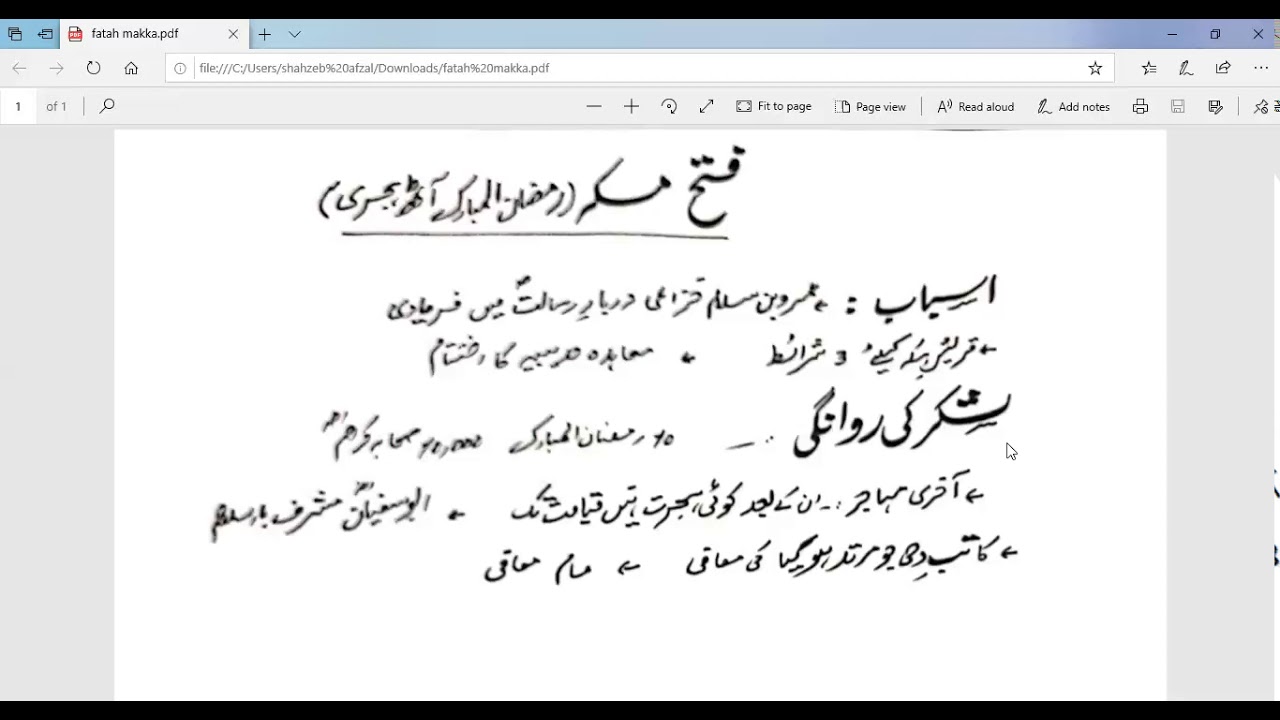 fatah makka.pdf
file:///C:/Users/shahzeb%20afzal/Downloads/fatah%20makka.pdf
1 of 1 Fit to page Page view Read aloud Add notes
فتح مکہ (رمضان المبارک آٹھ ہجری)
اسباب : ← عمرو بن سالم خزاعی دربارِ رسالتؐ میں فریادی
← قریش مکہ کیلئے 3 شرائط ← معاہدہ حدیبیہ کا اختتام
لشکر کی روانگی :. — 10 رمضان المبارک 10,000 صحابہ کرامؓ
← آخری مہاجر :. ان کے بعد کوئی ہجرت نہیں قیامت تک ← ابوسفیانؓ مشرف با اسلام
← کاتب وحی جو مرتد ہو گیا کی معافی ← عام معافی